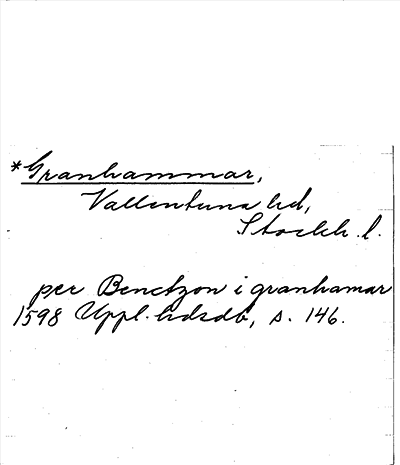 *Granhammar,
Vallentuna hd,
Stockh. l.
per Benctzon i granhamar
1598 Uppl. hdsdb, s. 146.